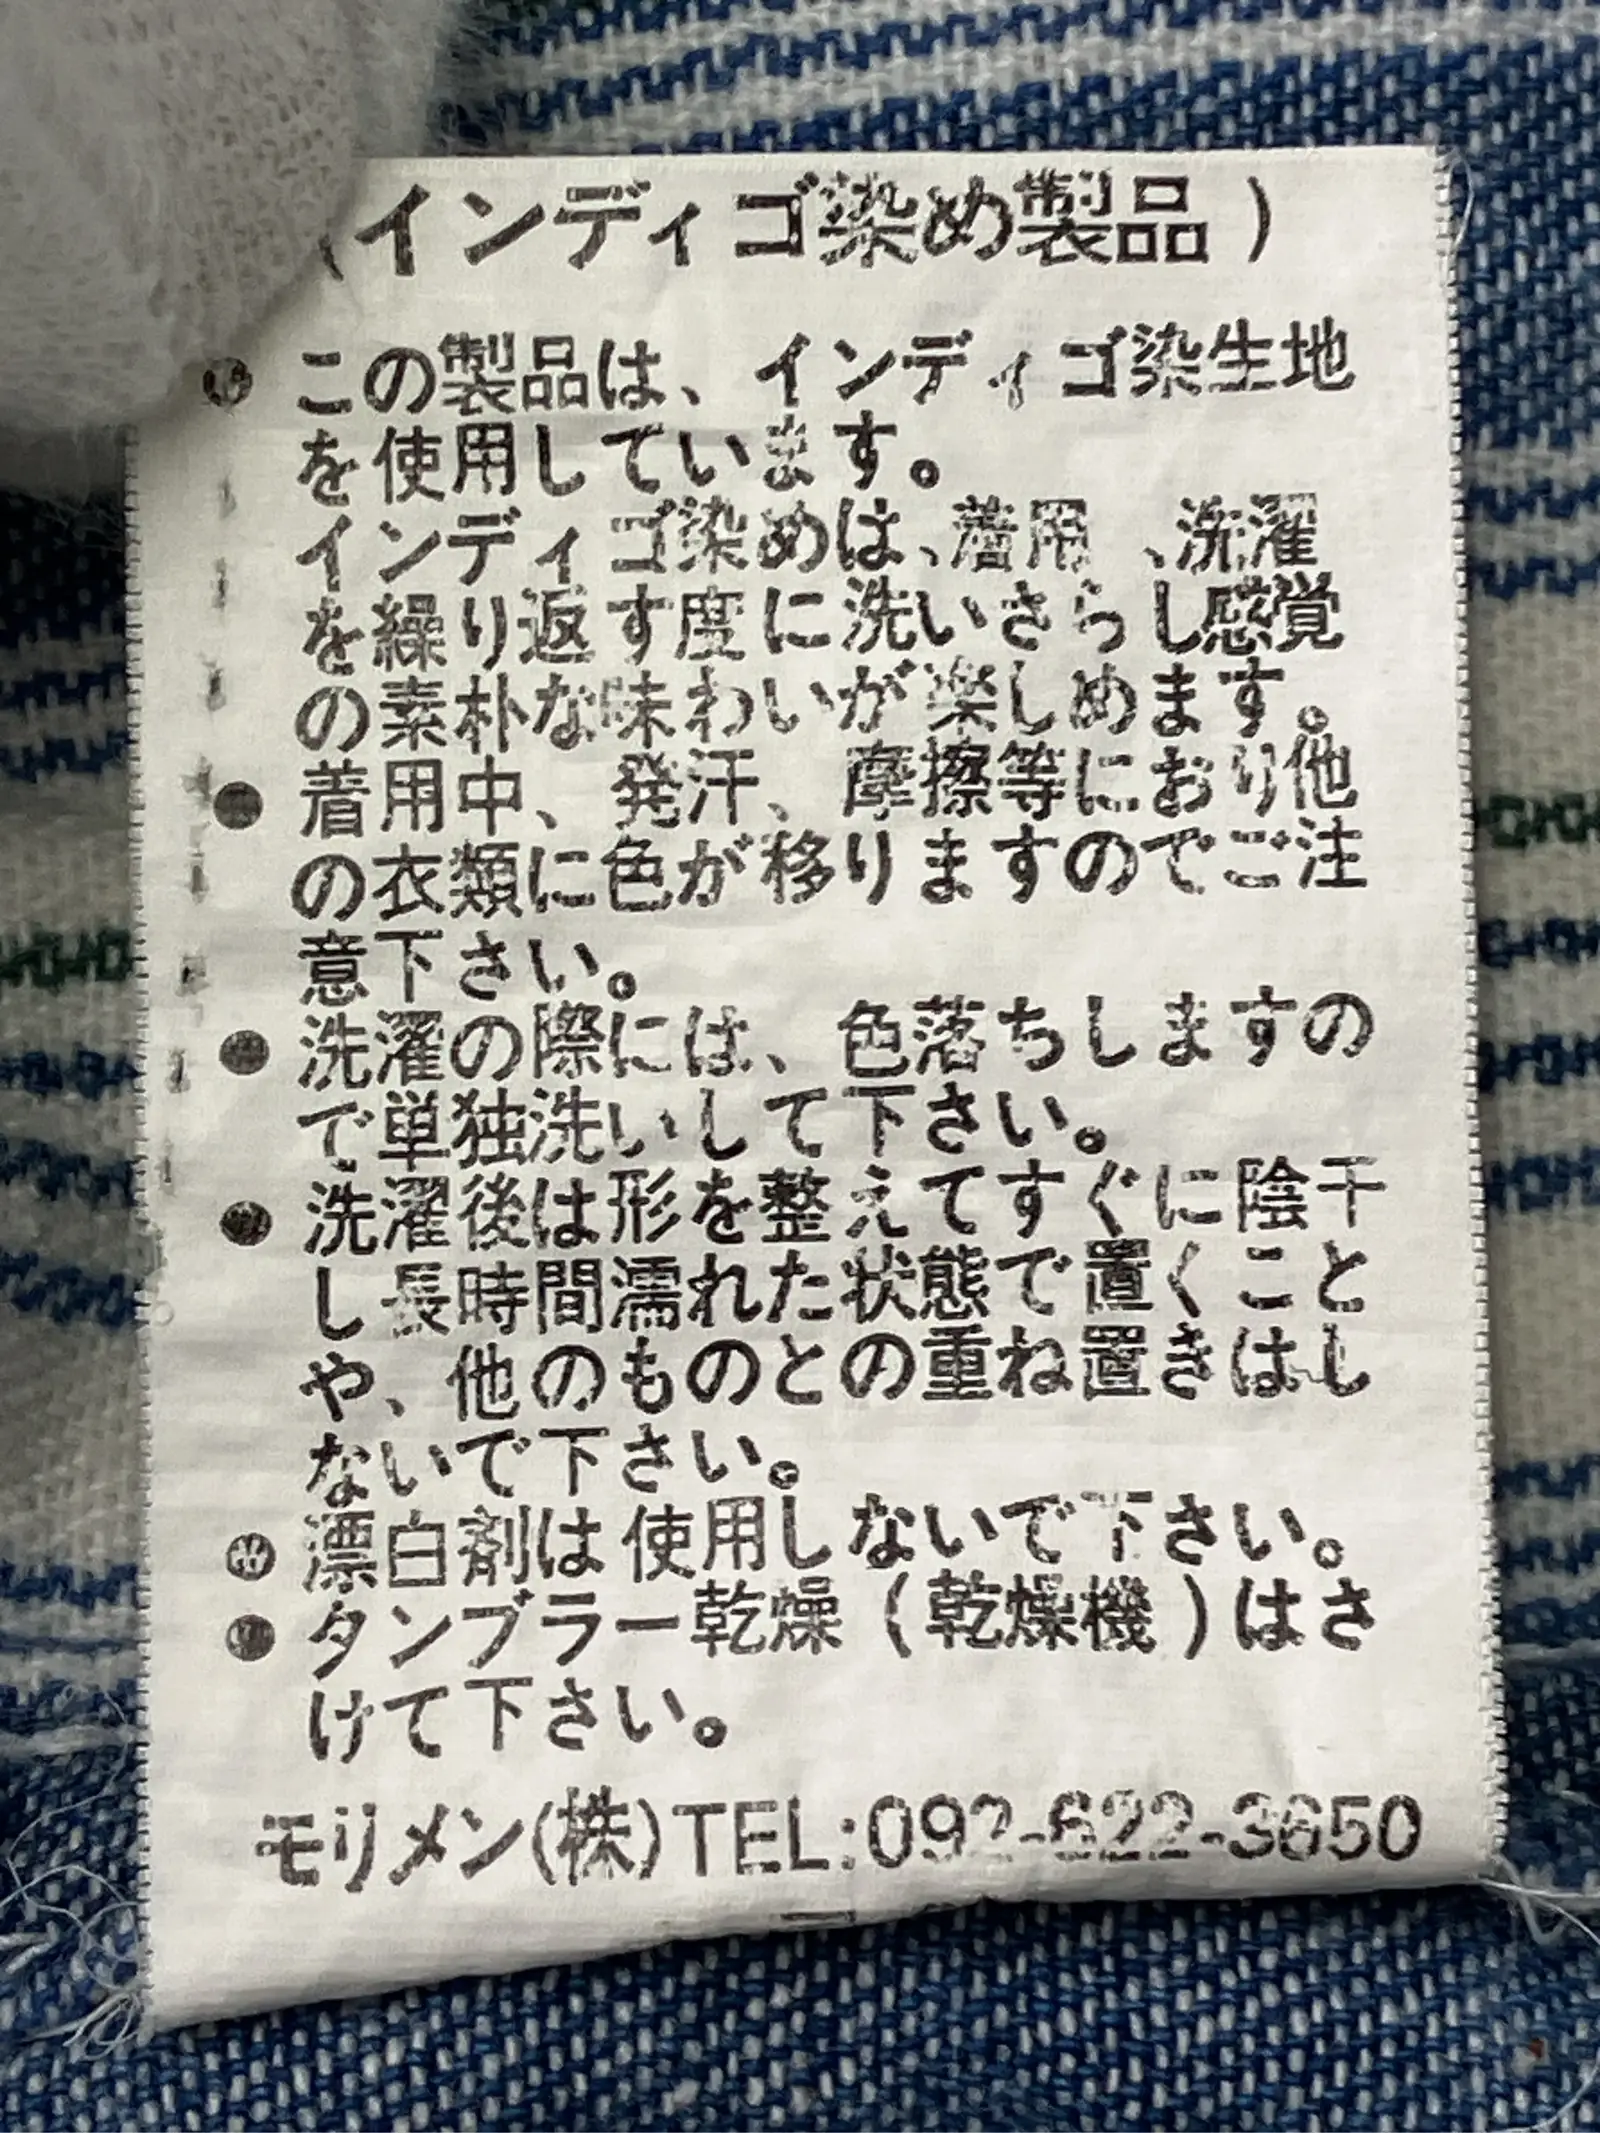 (インディゴ染め製品)
● この製品は、インディゴ染生地
を使用しています。
インディゴ染めは、着用、洗濯
を繰り返す度に洗いさらし感覚
の素朴な味わいが楽しめます。
● 着用中、発汗、摩擦等におり他
の衣類に色が移りますのでご注
意下さい。
● 洗濯の際には、色落ちしますの
で単独洗いして下さい。
● 洗濯後は形を整えてすぐに陰干
し長時間濡れた状態で置くこと
や、他のものとの重ね置きはし
ないで下さい。
● 漂白剤は使用しないで下さい。
● タンブラー乾燥(乾燥機)はさ
けて下さい。
モリメン(株)TEL:092-622-3650